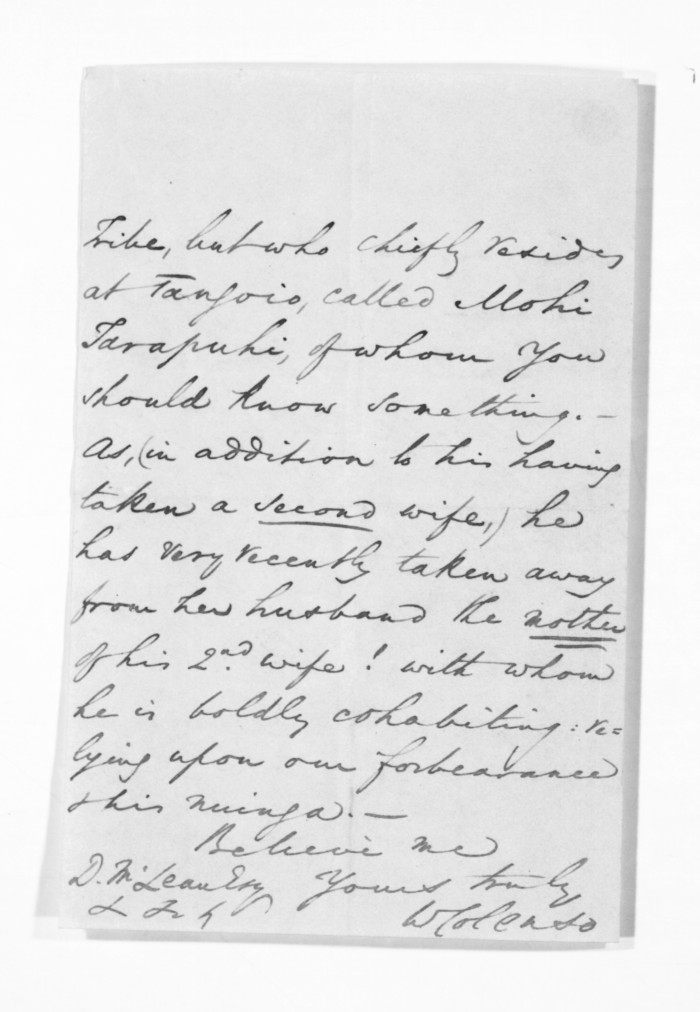 Tribe, but who chiefly resides
at Tangoio, called Mohi
Tarapuhi, of whom You
should know something. —
As, (in addition to his having
taken a second wife,) he
has very recently taken away
from her husband the mother
of his 2nd. wife! with whom
he is boldly cohabiting: re=
lying upon our forbearance
& his nuinga. —
Believe me
D. McLean Esq Yours truly
W Colenso